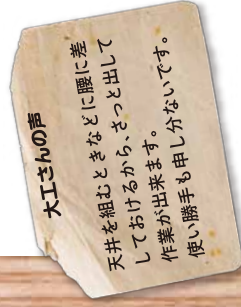 大工さんの声
天井を組むときなどに腰に差
しておけるから、さっと出して
作業が出来ます。
使い勝手も申し分ないです。